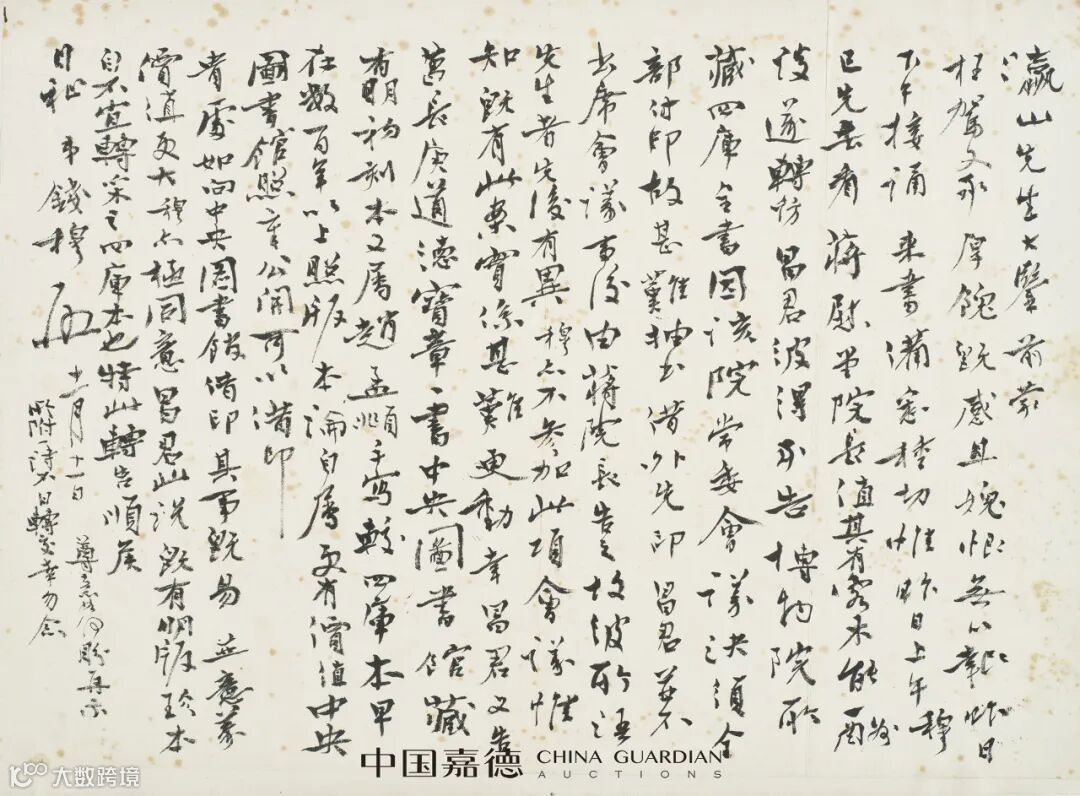 瀛山先生大鑒前蒙
枉駕又承厚餽既感且愧恨無以報昨日
下午接誦來書備悉種切惟昨日上午穆
已先去看蔣慰堂院長值其有客未能酬
談遂轉訪昌君彼得承告博物院所
藏四庫全書因該院常委會議決須全
部付印故甚難抽出借外先印昌君並不
出席會議事後由蔣院長告之故彼所語
先生者先後有異穆亦不參加此項會議惟
知既有此案實係甚難更動幸昌君又告
葛長庚道德寶章一書中央圖書館藏
有明初刻本又屬趙孟頫手寫較四庫本早
在數百年以上照版本論自屬更有價值中央
圖書館照章公開可以借印
者處如向中央圖書館借印其事既易並意義
價值更大穆亦極同意昌君此說既有明版珍本
自不宜轉采之四庫本也特此轉告順候
日祉 弟錢穆 啟 十一月十一日
尊意如何盼再示
所附一請不日轉交幸勿念
中国嘉德 CHINA GUARDIAN
AUCTIONS
大数跨境